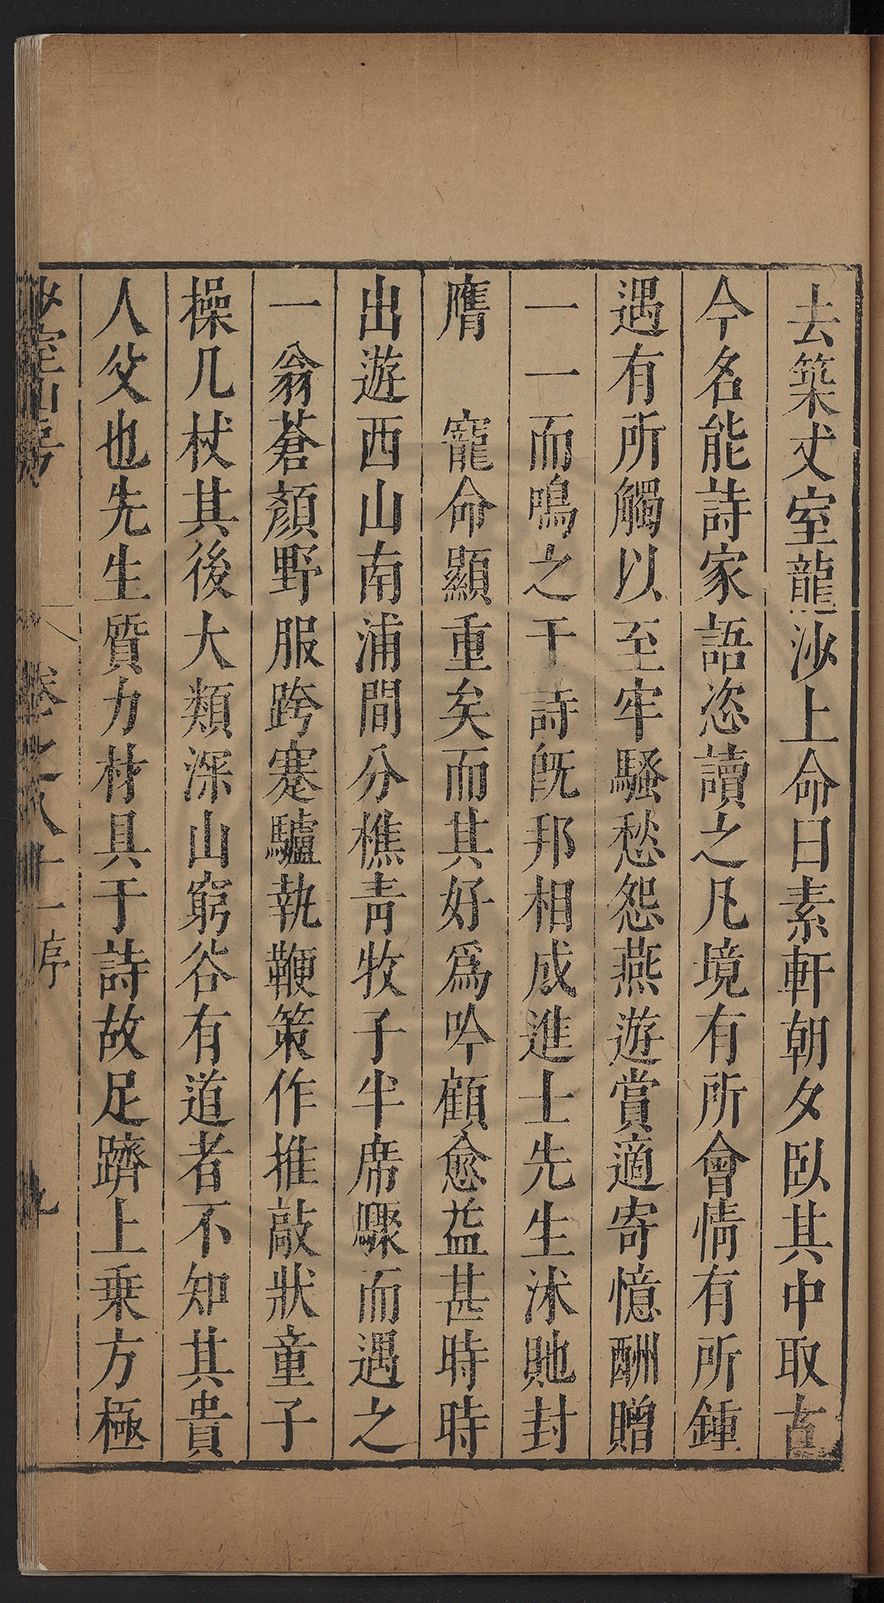 去築丈室龍沙上命曰素軒朝夕臥其中取古
今名能詩家語恣讀之凡境有所會情有所鍾
遇有所觸以至牢騷愁怨燕遊賞適寄憶酬贈
一一而鳴之于詩旣邦相成進士先生沭貤封
膺　寵命顯重矣而其好爲吟顧愈益甚時時
出遊西山南浦間分樵靑牧子半席驟而遇之
一翁蒼顏野服跨蹇驢執鞭策作推敲狀童子
操几杖其後大類深山窮谷有道者不知其貴
人父也先生質力材具于詩故足躋上乗方極
少室山房 卷之八十一序 九